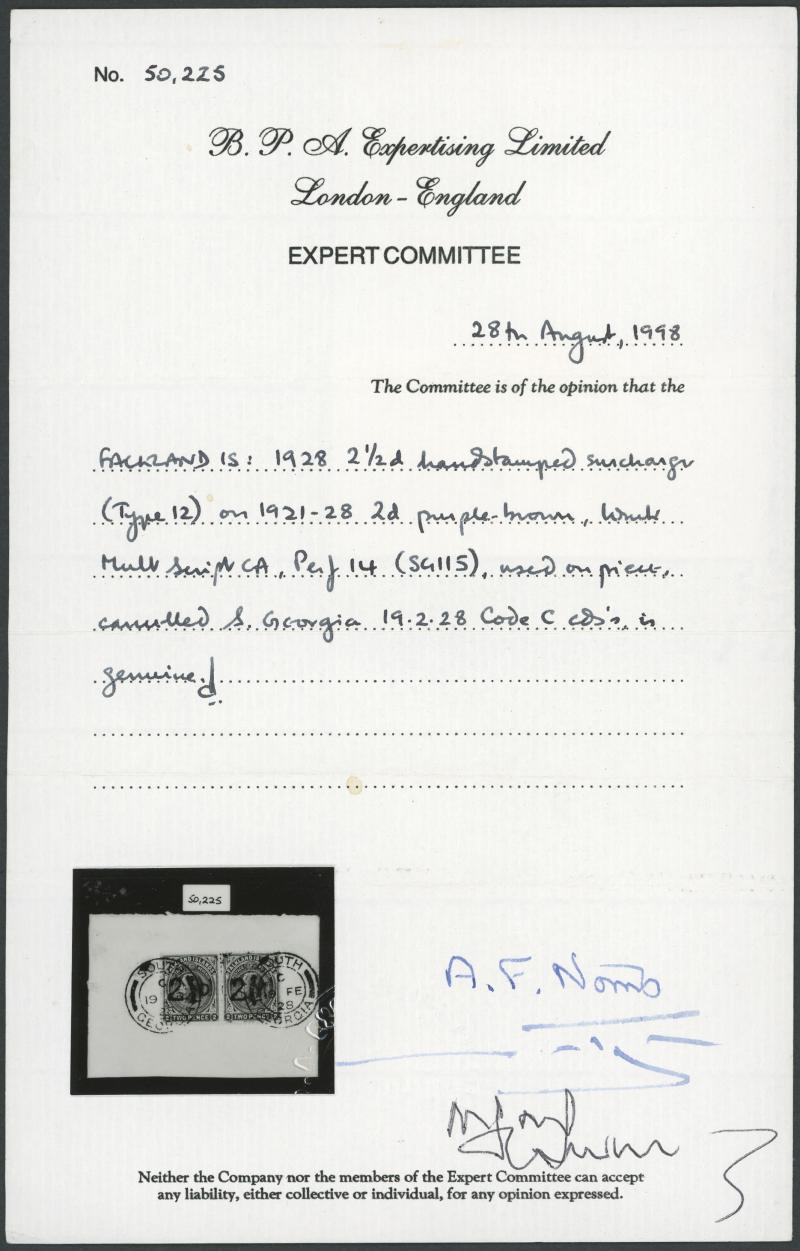 No. 50,225
B. P. A. Expertising Limited
London - England
EXPERT COMMITTEE
28th August, 1998
The Committee is of the opinion that the
FALKLAND IS: 1928 2½d handstamped surcharge
(Type 12) on 1921-28 2d purple-brown, wmk
Mult Script CA, Perf 14 (SG115), used on piece,
cancelled S. Georgia 19.2.28 Code C cds's, is
genuine.
50,225
SOUTH GEORGIA
C
19 FE
28
TWO PENCE
TWO PENCE
A. F. Norris
Neither the Company nor the members of the Expert Committee can accept
any liability, either collective or individual, for any opinion expressed.